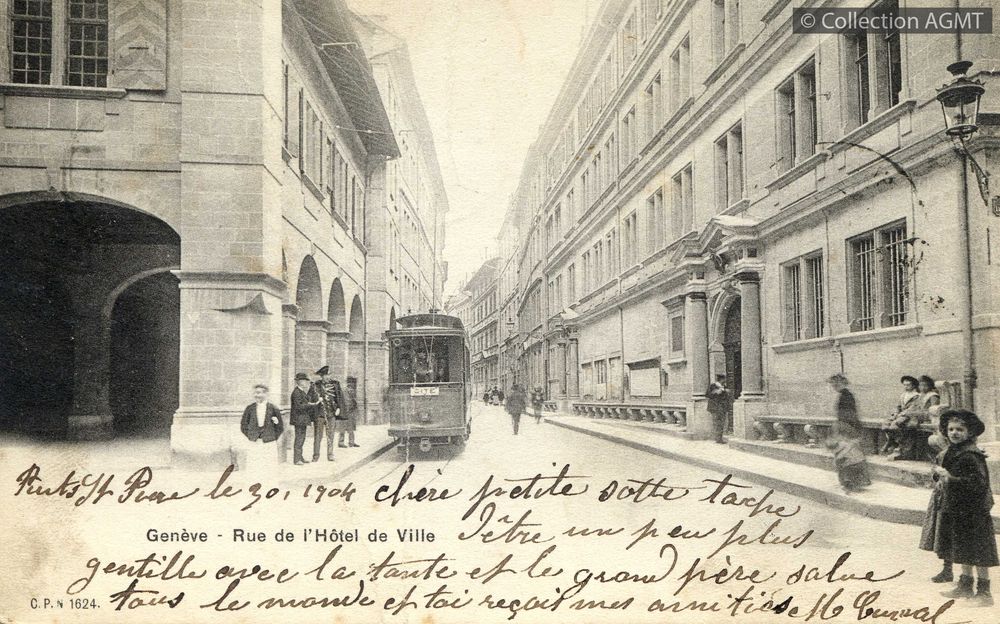 © Collection AGMT
CITÉ
Puits St Pierre le 30, 1904 chère petite sotte tache
Genève - Rue de l'Hôtel de Ville
d'être un peu plus
gentille avec la tante et le grand père salue
C. P. N 1624.
tous le monde et toi reçois mes amitiés M